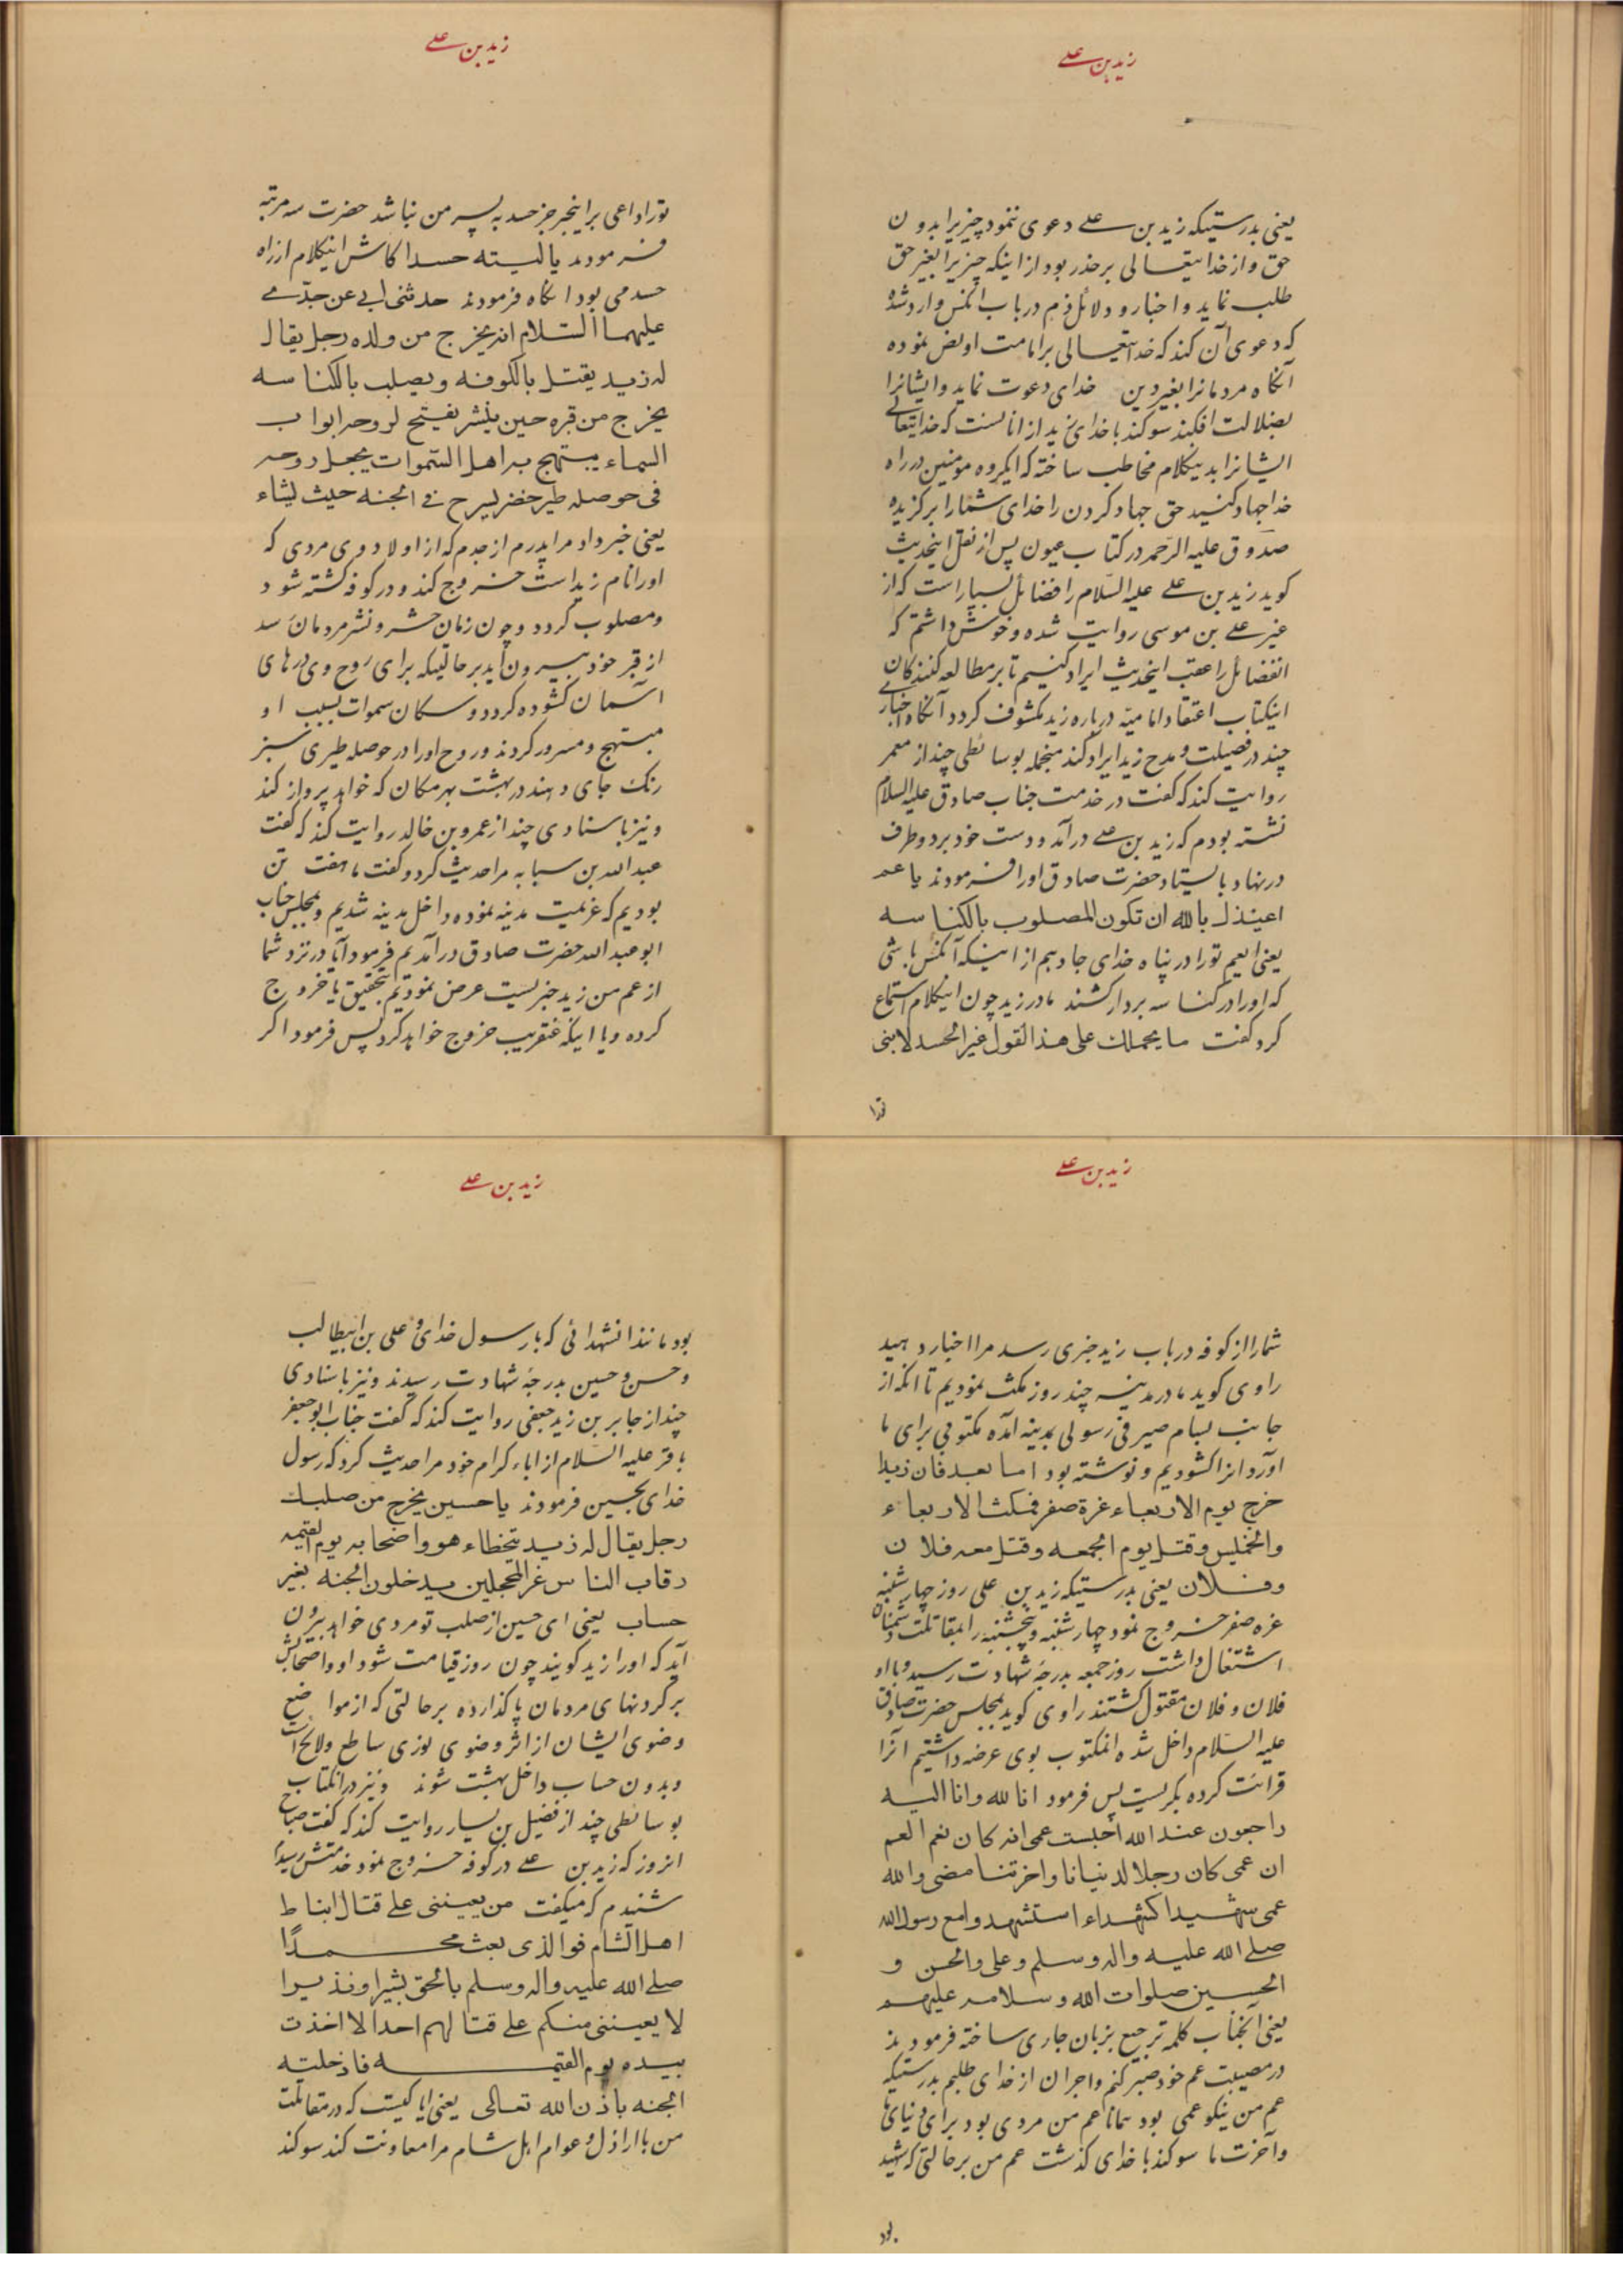 زید بن علے
یعنی بدرستیکه زید بن علے دعوی ننمود چیزیرا بدون
حق و از خدایتعالی بر حذر بود از اینکه چیزیرا بغیر حق
طلب نماید و اخبار و دلائل ذم در باب انکس وارد شده
که دعوی آن کند که خدایتعالی بر امامت او نص نموده
آنگاه مردمانرا بغیر دین خدای دعوت نماید و ایشانرا
بضلالت افکند سوکند با خدای زید از انانست که خدایتعالے
ایشانرا بدینکلام مخاطب ساخته که ایگروه مؤمنین در راه
خدا جهاد کنید حق جهاد کردن را خدای شما را برکزیده
صدوق علیه الرحمه در کتاب عیون پس از نقل اینحدیث
کوید زید بن علے علیه السلام را فضائل بسیار است که از
غیر علے بن موسی روایت شده و خوش داشتم که
انفضائل را عقب اینحدیث ایراد کنیم تا بر مطالعه کنندکان
اینکتاب اعتقاد امامیّه درباره زید مکشوف کردد آنگاه اخبارے
چند در فضیلت و مدح زید ایراد کند منجمله بوسائطی چند از معمر
روایت کند که گفت در خدمت جناب صادق علیه السلام
نشسته بودم که زید بن علے در آمد و دست خود بر دو طرف
در نهاد بایستاد حضرت صادق او را فرمودند یا عم
اعیذک بالله ان تکون المصلوب بالکناسه
یعنی ایعم تو را در پناه خدای جا دهم از اینکه آنکس باشی
که او را در کناسه بردار کشند مادر زید چون اینکلام استماع
کرد کفت ما یحملک علی هذا القول غیر الحسد لابنی
تو را
زید بن علے
تو را داعی بر اینخبر جز حسد به پسر من نباشد حضرت سه مرتبه
فرمودند یا لیته حسدا کاش اینکلام از راه
حسد می بود انگاه فرمودند حدثنی ابی عن جدّے
علیهما السّلام انه یخرج من ولده رجل یقال
له زید یقتل بالکوفه و یصلب بالکناسه
یخرج من قبره حین ینشر یفتح لروحه ابواب
السماء یبتهج به اهل السّموات یجعل روحه
فی حوصله طیر خضر یسرح فے الجنه حیث یشاء
یعنی خبر داد مرا پدرم از جدم که از اولاد وی مردی که
او را نام زید است خروج کند و در کوفه کشته شود
و مصلوب کردد و چون زمان حشر و نشر مردمان رسد
از قبر خود بیرون آید بر حالتیکه برای روح وی درهای
آسمان کشوده کردد و سکان سموات بسبب او
مبتهج و مسرور کردند و روح او را در حوصله طیری سبز
رنک جای دهند در بهشت بهر مکان که خواهد پرواز کند
و نیز باسنادی چند از عمرو بن خالد روایت کند که گفت
عبد الله بن سبابه مرا حدیث کرد و کفت ما هفت تن
بودیم که عزیمت مدینه نموده داخل مدینه شدیم و بمجلس جناب
ابو عبد الله حضرت صادق در آمدیم فرمود آیا در نزد شما
از عم من زید خبریست عرض نمودیم بتحقیق یا خروج
کرده و یا اینکه عنقریب خروج خواهد کرد پس فرمود اکر
زید بن علے
شما را از کوفه در باب زید خبری رسد مرا اخبار دهید
راوی کوید ما در مدینه چند روز مکث نمودیم تا انکه از
جانب بسام صیرفی رسولی بمدینه آمده مکتوبی برای ما
آورد انرا کشودیم و نوشته بود اما بعد فان زیدا
خرج یوم الاربعاء غرة صفر فمکث الاربعاء
و الخمیس و قتل یوم الجمعه و قتل معه فلان
و فلان یعنی بدرستیکه زید بن علی روز چهارشنبه
غره صفر خروج نمود چهارشنبه و پنجشنبه را بمقاتلت دشمنان
اشتغال داشت روز جمعه بدرجه شهادت رسید و با او
فلان و فلان مقتول کشتند راوی کوید بمجلس حضرت صادق
علیه السلام داخل شده انمکتوب بوی عرضه داشتیم آنرا
قرائت کرده بکریست پس فرمود انا لله و انا الیه
راجعون عند الله احتسب عمی انه کان نعم العم
ان عمی کان رجلا لدنیانا و اخرتنا مضی و الله
عمی شهیدا کشهداء استشهدوا مع رسول الله
صلے الله علیه و اله و سلم و علی و الحسن و
الحسین صلوات الله و سلامه علیهم
یعنی آنجناب کلمه ترجیع بزبان جاری ساخته فرمودند
در مصیبت عم خود صبر کنم و اجر ان از خدای طلبم بدرستیکه
عم من نیکو عمی بود همانا عم من مردی بود برای دنیای ما
و آخرت ما سوکند با خدای کذشت عم من بر حالتی که شهید
بود
زید بن علے
بود مانند انشهدائی که با رسول خدای و علی بن ابیطالب
و حسن و حسین بدرجه شهادت رسیدند و نیز باسنادی
چند از جابر بن زید جعفی روایت کند که گفت جناب ابو جعفر
باقر علیه السلام از اباء کرام خود مرا حدیث کرد که رسول
خدای بحسین فرمودند یا حسین یخرج من صلبک
رجل یقال له زید یتخطاء هو و اصحابه یوم القیمه
رقاب الناس غر المحجلین یدخلون الجنه بغیر
حساب یعنی ای حسین از صلب تو مردی خواهد بیرون
آید که او را زید کویند چون روز قیامت شود او و اصحابش
بر کردنهای مردمان پا کذارده بر حالتی که از مواضع
وضوی ایشان از اثر وضوی نوری ساطع و لایح است
و بدون حساب داخل بهشت شوند و نیز در انکتاب
بوسائطی چند از فضیل بن یسار روایت کند که گفت صباح
انروز که زید بن علے در کوفه خروج نمود خدمتش رسیدم
شنیدم که میکفت من یعیننی علے قتال انباط
اهل الشام فو الذی بعث محمدًا
صلے الله علیه و اله و سلم بالحق بشیرا و نذیرا
لا یعیننی منکم علے قتالهم احدا لا اخذت
بیده یوم القیمه فادخلته
الجنه باذن الله تعالی یعنی ایا کیست که در مقاتلت
من با اراذل و عوام اهل شام مرا معاونت کند سوکند